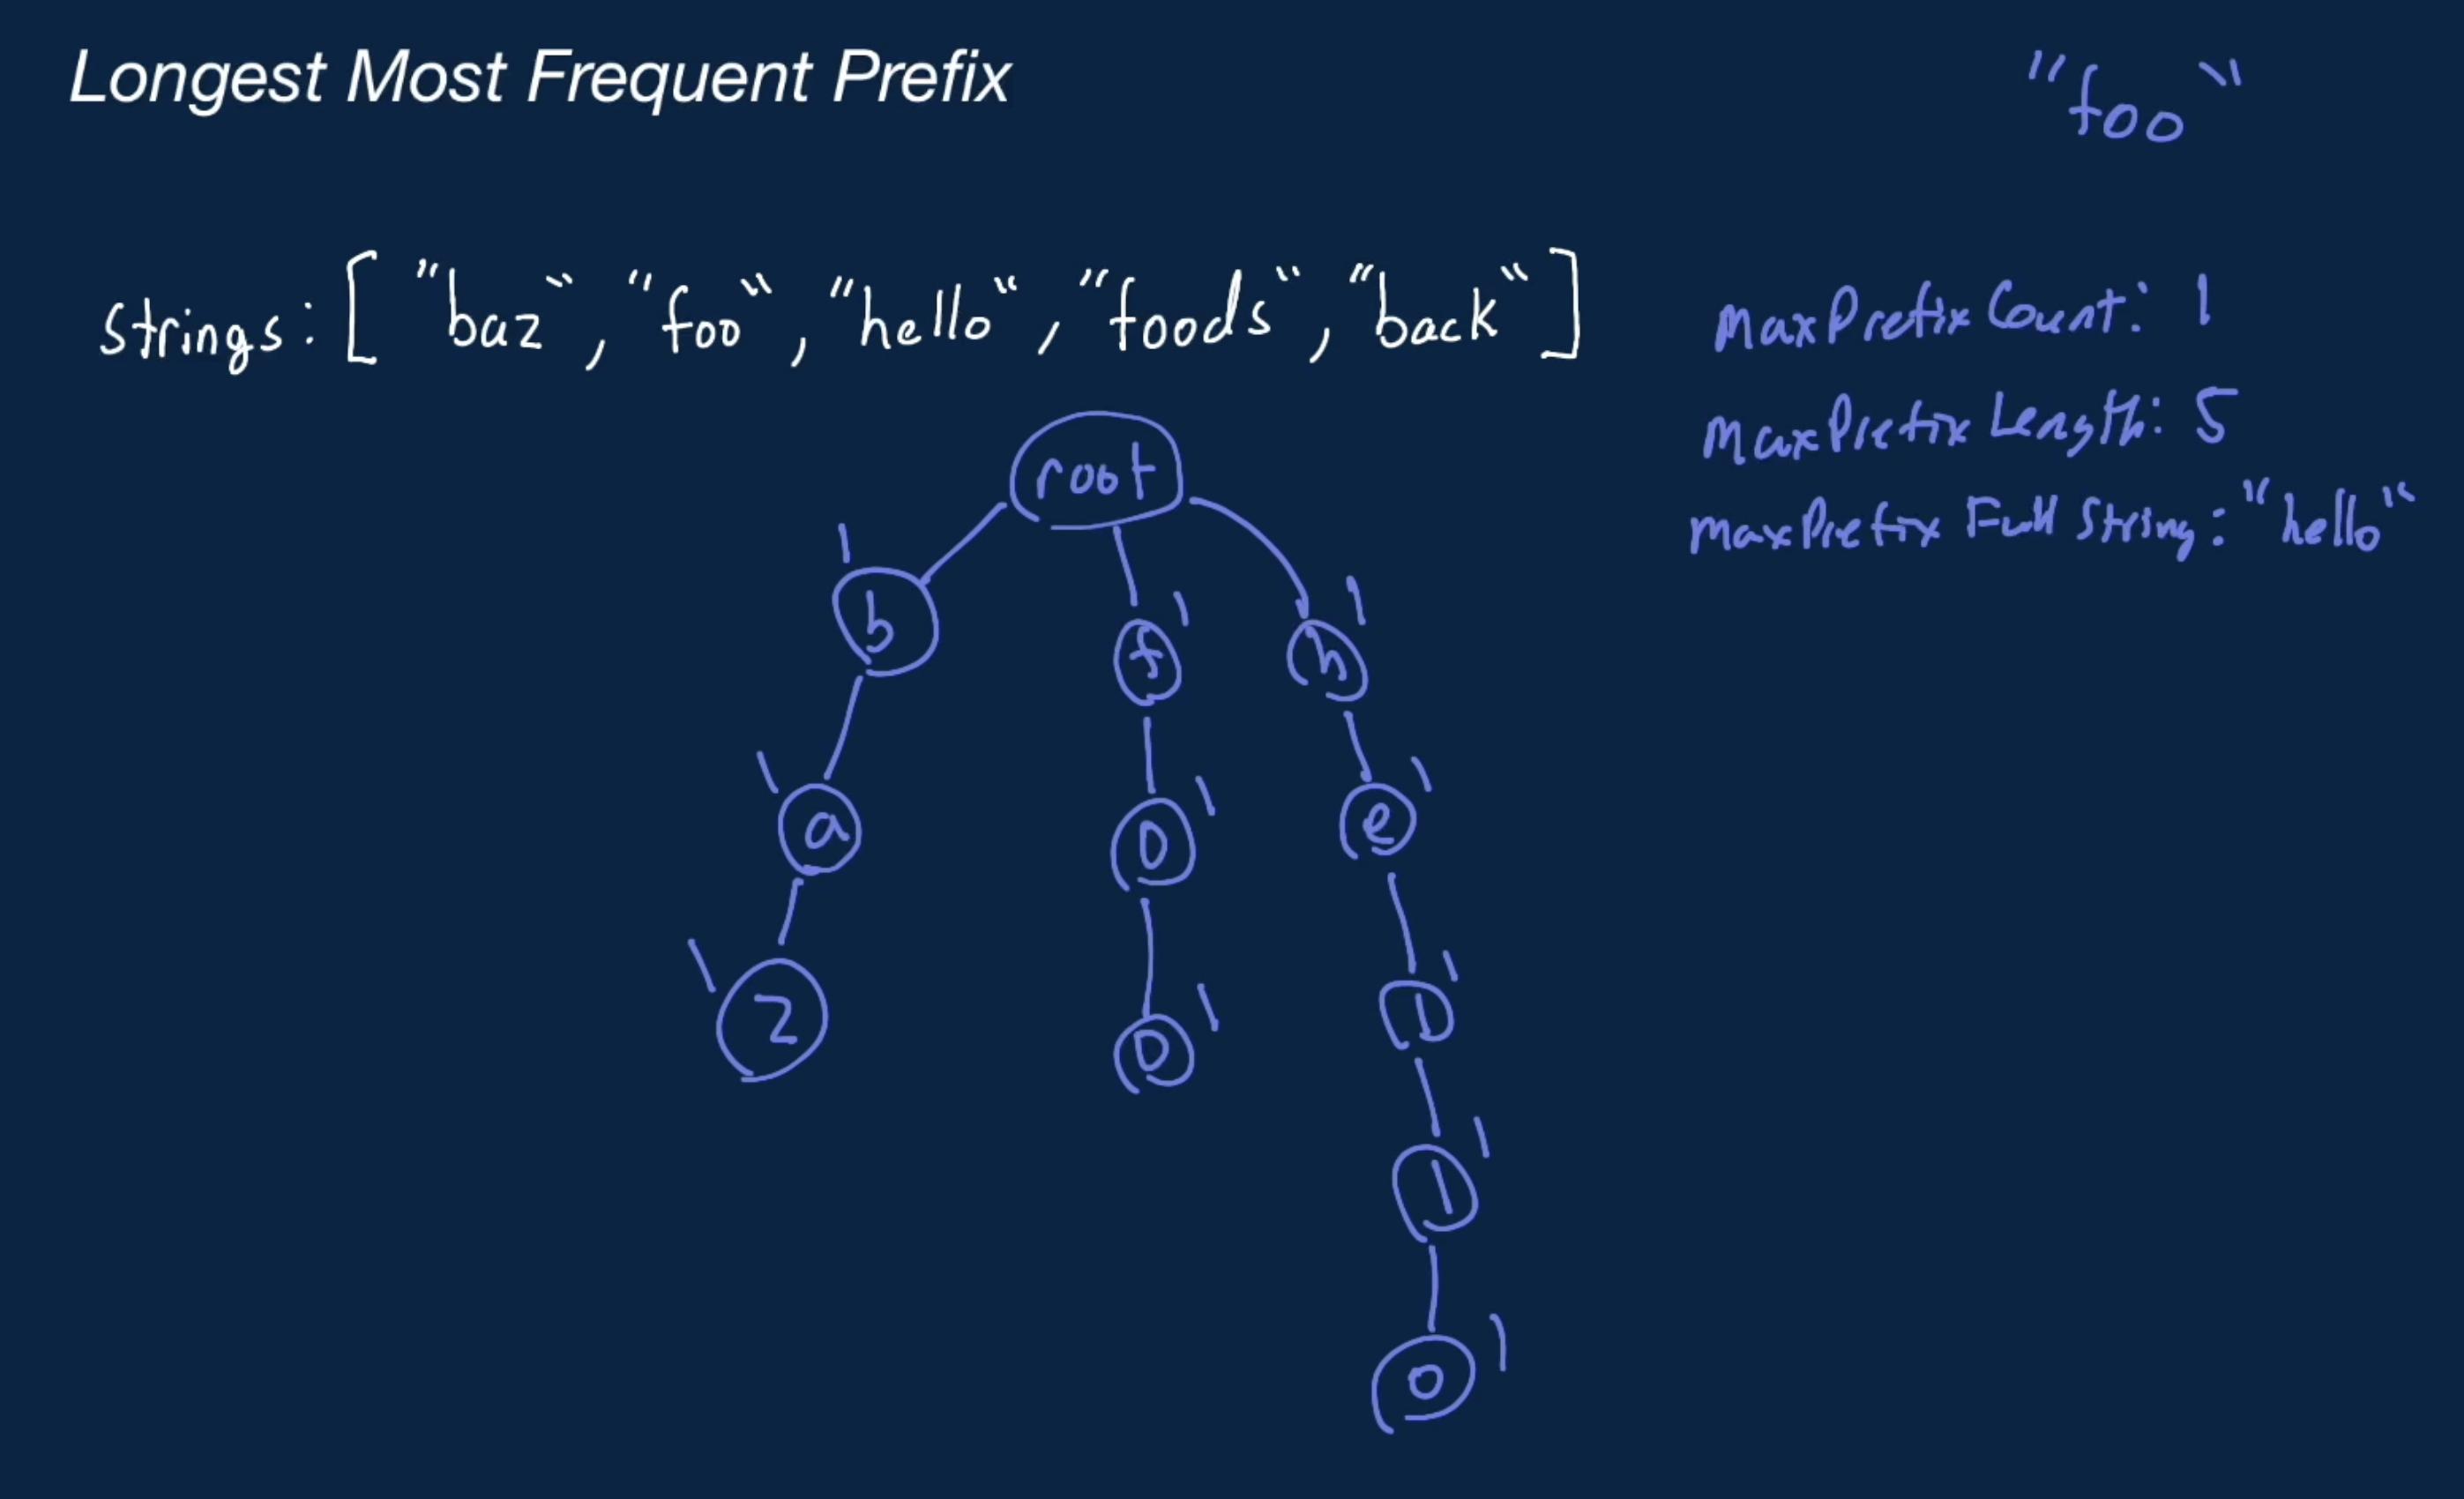 Longest Most Frequent Prefix
"foo"
strings: ["baz", "foo", "hello", "foods", "back"]
MaxPrefix Count: 1
MaxPrefix Length: 5
maxPrefix Full String: "hello"
root
1 1 1
b f h
1 1 1
a o e
1 1 1
z o l
1
l
1
o